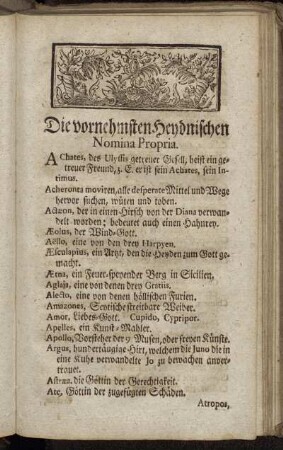 Die vornehmsten Heydnischen
Nomina Propria.
AChates, des Ulyssis getreuer Gesell, heist ein ge-
treuer Freund, z. E. er ist sein Achates, sein In-
timus.
Acheronta moviren, alle desperate Mittel und Wege
hervor suchen, wüten und toben.
Actæon, der in einen Hirsch von der Diana verwan-
delt worden; bedeutet auch einen Hahnrey.
Æolus, der Wind-Gott.
Aëllo, eine von den drey Harpyen.
Æsculapius, ein Artzt, den die Heyden zum Gott ge-
macht.
Ætna, ein Feuer-speyender Berg in Sicilien.
Aglaja, eine von denen drey Gratiis.
Alecto, eine von denen höllischen Furien.
Amazones, Scytische streitbare Weiber.
Amor, Liebes-Gott. Cupido, Cypripor.
Apelles, ein Kunst-Mahler.
Apollo, Vorsteher der 9 Musen, oder freyen Künste.
Argus, hundertäugige Hirt, welchem die Juno die in
eine Kuhe verwandelte Jo zu bewachen anver-
trauet.
Astræa, die Göttin der Gerechtigkeit.
Ate, Göttin der zugefügten Schäden.
Atropos,